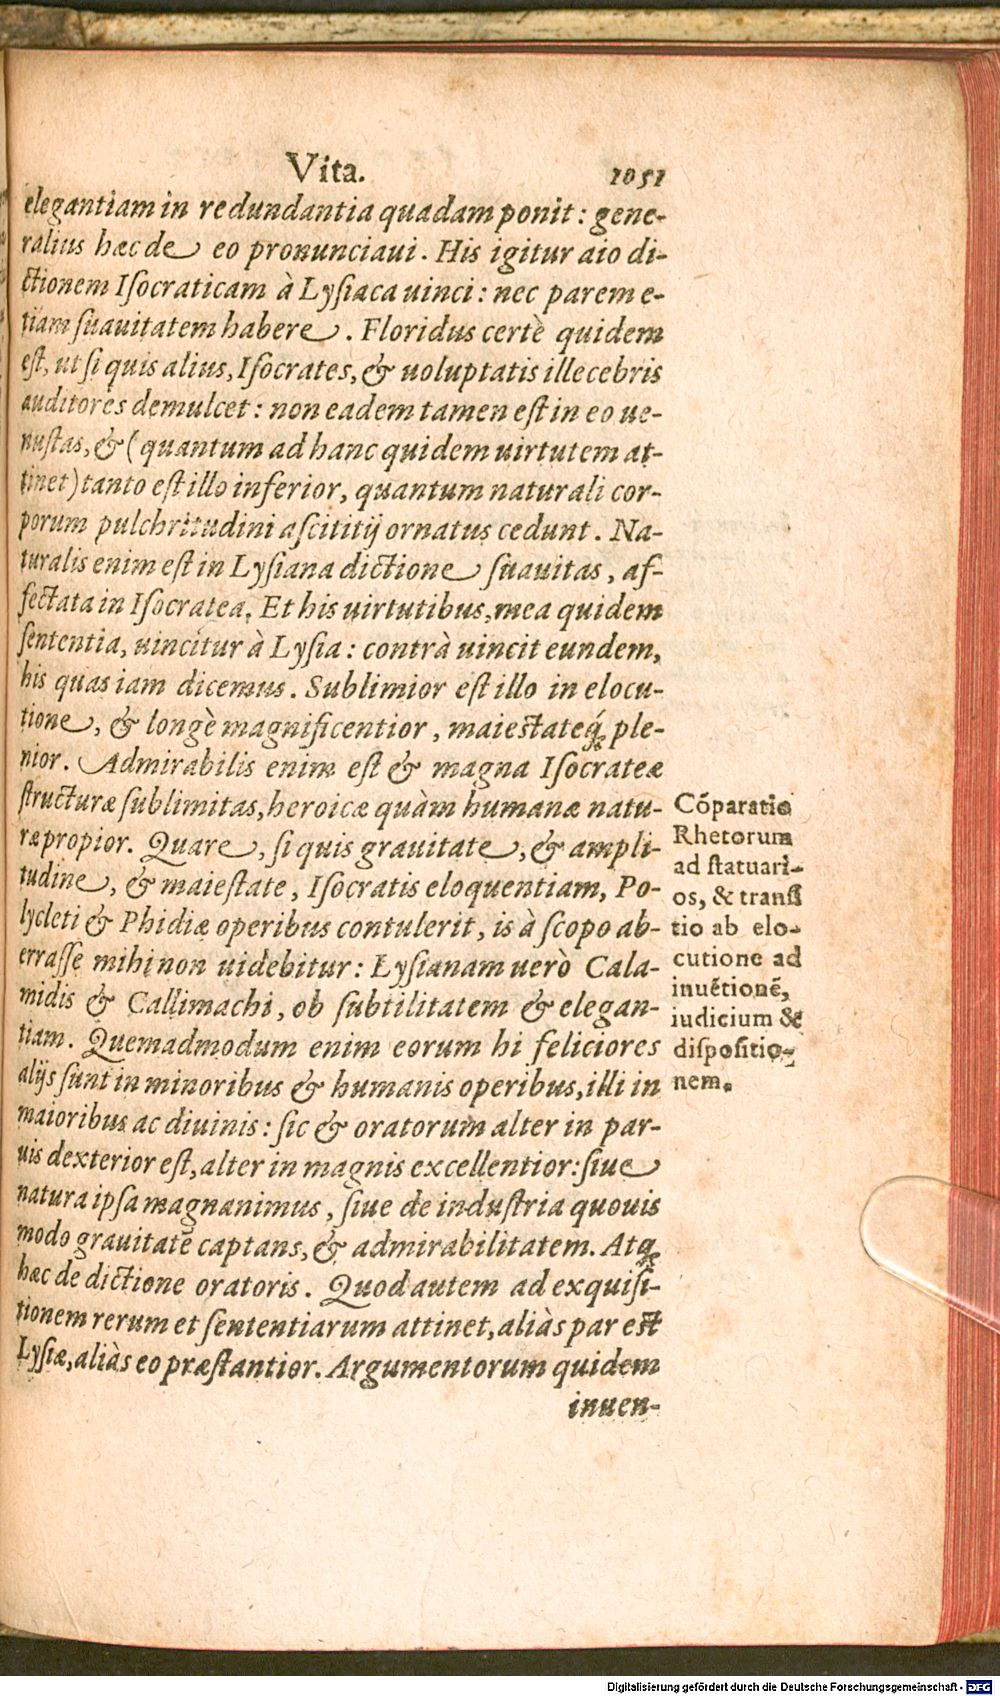 Vita. 1051
elegantiam in redundantia quadam ponit: gene-
ralius hæc de eo pronunciaui. His igitur aio di-
ctionem Isocraticam à Lysiaca uinci: nec parem e-
tiam suauitatem habere. Floridus certè quidem
est, ut si quis alius, Isocrates, & uoluptatis illecebris
auditores demulcet: non eadem tamen est in eo ue-
nustas, & (quantum ad hanc quidem uirtutem at-
tinet) tanto est illo inferior, quantum naturali cor-
porum pulchritudini ascititij ornatus cedunt. Na-
turalis enim est in Lysiana dictione suauitas, af-
fectata in Isocratea. Et his uirtutibus, mea quidem
sententia, uincitur à Lysia: contrà uincit eundem,
his quas iam dicemus. Sublimior est illo in elocu-
tione, & longè magnificentior, maiestateq́; ple-
nior. Admirabilis enim est & magna Isocrateæ
structuræ sublimitas, heroicæ quàm humanæ natu-
ræ propior. Quare, si quis grauitate, & ampli-
tudine, & maiestate, Isocratis eloquentiam, Po-
lycleti & Phidiæ operibus contulerit, is à scopo ab-
errasse mihi non uidebitur: Lysianam uerò Cala-
midis & Callimachi, ob subtilitatem & elegan-
tiam. Quemadmodum enim eorum hi feliciores
alijs sunt in minoribus & humanis operibus, illi in
maioribus ac diuinis: sic & oratorum alter in par-
uis dexterior est, alter in magnis excellentior: siue
natura ipsa magnanimus, siue de industria quouis
modo grauitatē captans, & admirabilitatem. Atq;
hæc de dictione oratoris. Quod autem ad exquisi-
tionem rerum et sententiarum attinet, aliàs par est
Lysiæ, aliàs eo præstantior. Argumentorum quidem
inuen-
Cōparatio
Rhetorum
ad statuari-
os, & transi
tio ab elo-
cutione ad
inuētionē,
iudicium &
dispositio-
nem.
Digitalisierung gefördert durch die Deutsche Forschungsgemeinschaft - DFG